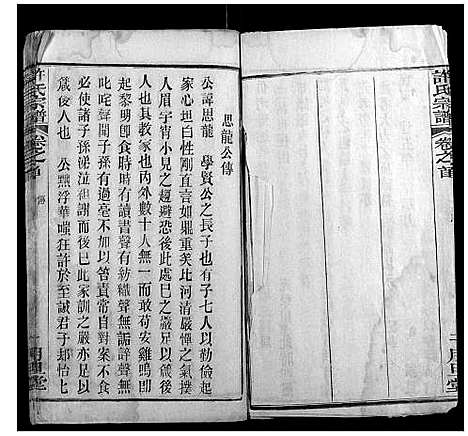 許氏宗譜
卷之首
思龍公傳
公諱思龍 學賢公之長子也有子七人以勤儉起
家心坦白性剛直言如鼎重笑比河清嚴憚之氣撲
人眉宇宵小見之趨避恐後此處已之嚴足以儀後
人也其教家也內外數十人無一而敢苟安雞鳴即
起黎明即食時時有讀書聲有紡織聲無詬誶聲無
叱咤聲閒子孫有過毫不加以笞責常自對案不食
必使諸子孫涕泣袒謝而後已此家訓之嚴亦足以
儀後人也 公黜浮華嗤狂許於至誠君子却怡七
許氏宗譜
卷之首
傳
一